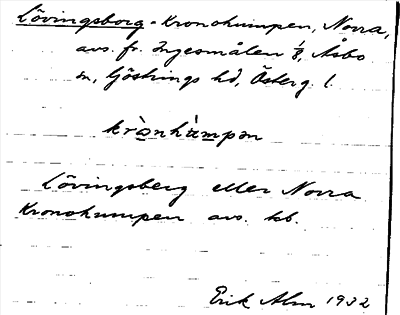 Lövingsborg - Kronohumpen, Norra,
avs. fr. Ingesmålen 1/8, Åsbo
sn, Göstrings hd, Österg. l.
krònhùmpən
Lövingsberg eller Norra
Kronohumpen avs. kb.
Erik Alm 1932